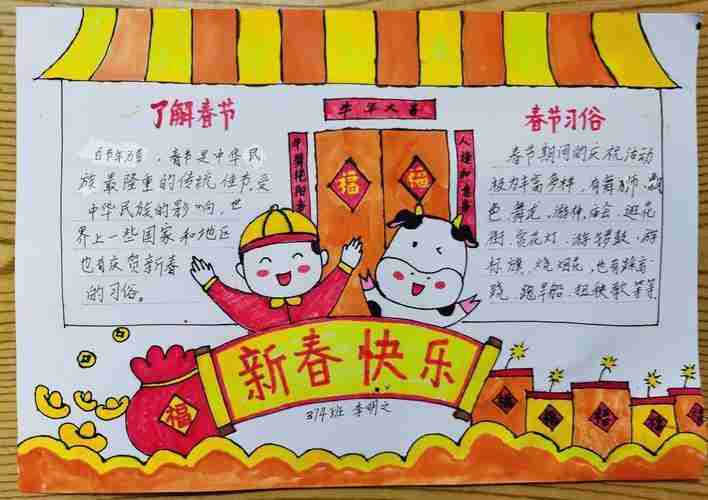 牛年大吉
了解春节
春节是中华民
族最隆重的传统佳节,受
中华民族的影响，世
界上一些国家和地区
也有庆贺新春
的习俗。
福
福
春节习俗
春节期间的庆祝活动
极为丰富多样，有舞狮、飘
色、舞龙、游神、庙会、逛花
街、赏花灯、游锣鼓、游
标旗、烧烟花，也有踩高
跷、跑旱船、扭秧歌等等
新春快乐
福
班 李明
福
福
福
福
福